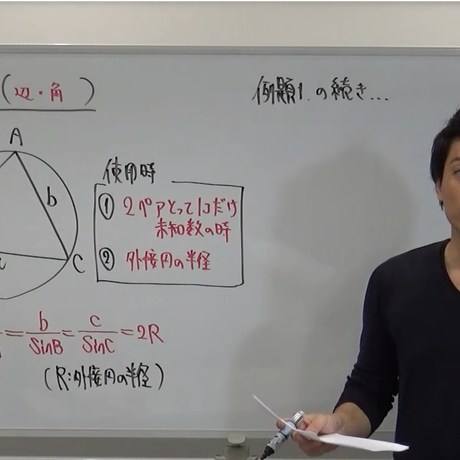 (辺・角)
例題1.の続き...
A
b
C
使用時
① 2ペアとって1コだけ
未知数の時
② 外接円の半径
= b/SinB = c/SinC = 2R
(R:外接円の半径)